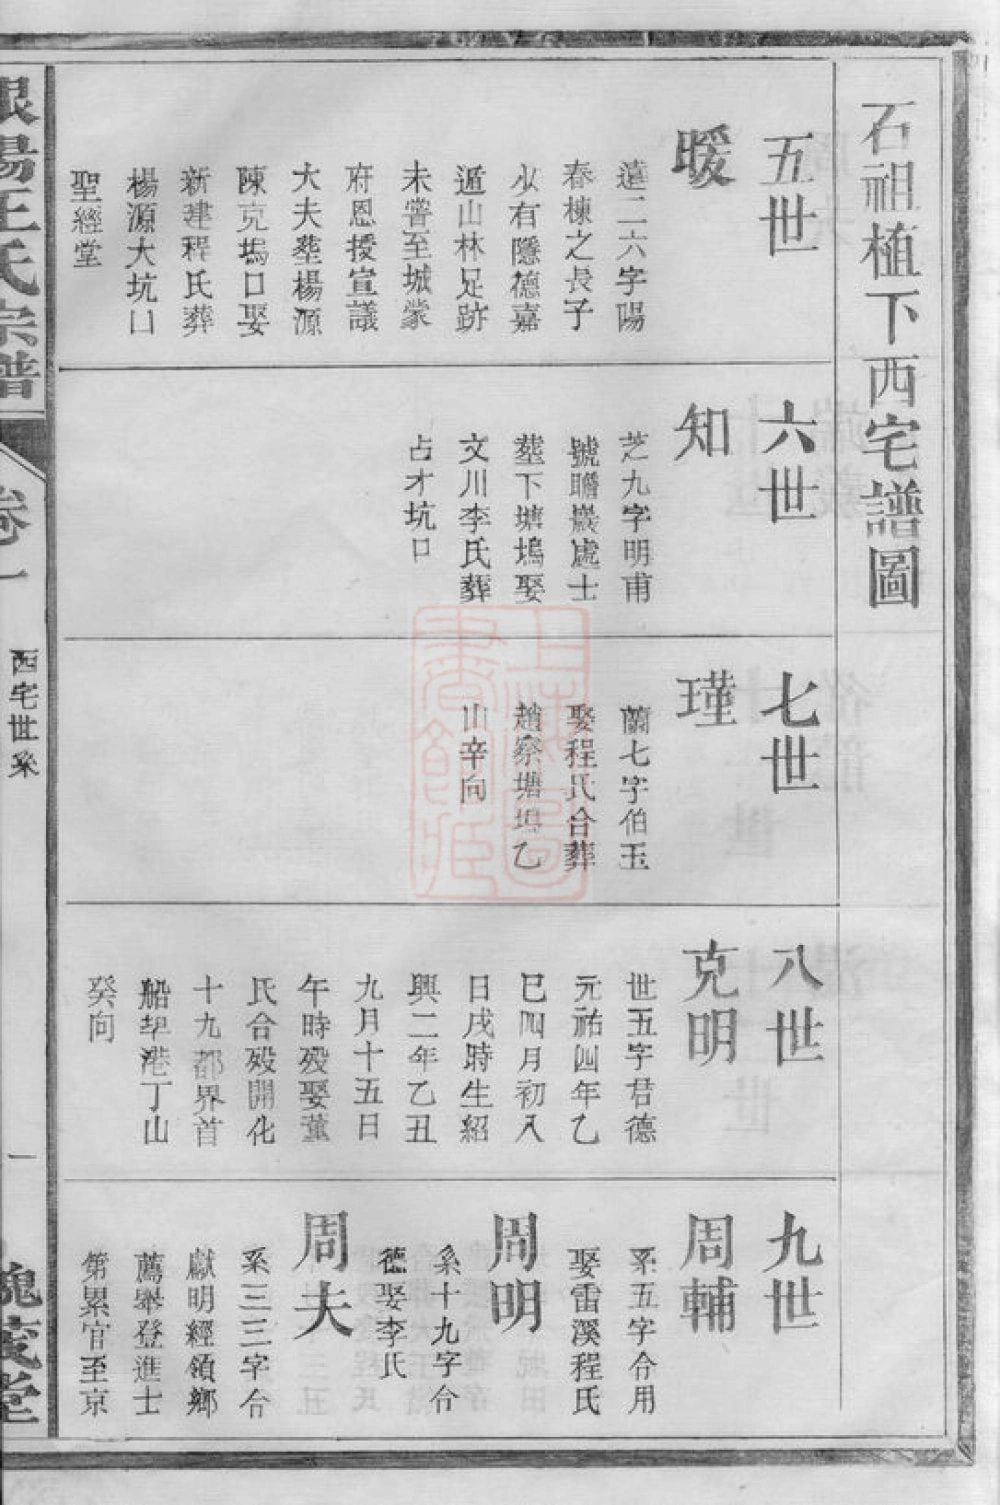 石祖植下西宅譜圖
五世
暖
蓮二六字陽
春棟之長子
少有隱德嘉
遁山林足跡
未嘗至城蒙
府恩授宣議
大夫塟楊源
陳克塢口娶
新建程氏葬
楊源大坑口
聖經堂
六世
知
芝九字明甫
號瞻巖處士
塟下塘塢娶
文川李氏葬
占才坑口
七世
瑾
蘭七字伯玉
娶程氏合葬
趙家塘塢乙
山辛向
八世
克明
世五字君德
元祐四年乙
巳四月初八
日戌時生紹
興二年乙丑
九月十五日
午時歿娶董
氏合歿開化
十九都界首
船埠港丁山
癸向
九世
周輔
系五字合用
娶雷溪程氏
周明
系十九字合
德娶李氏
周夫
系三三字合
獻明經領鄉
薦舉登進士
第累官至京
王氏宗譜
卷一
西宅世系
一
槐蔭堂
上海圖書館藏